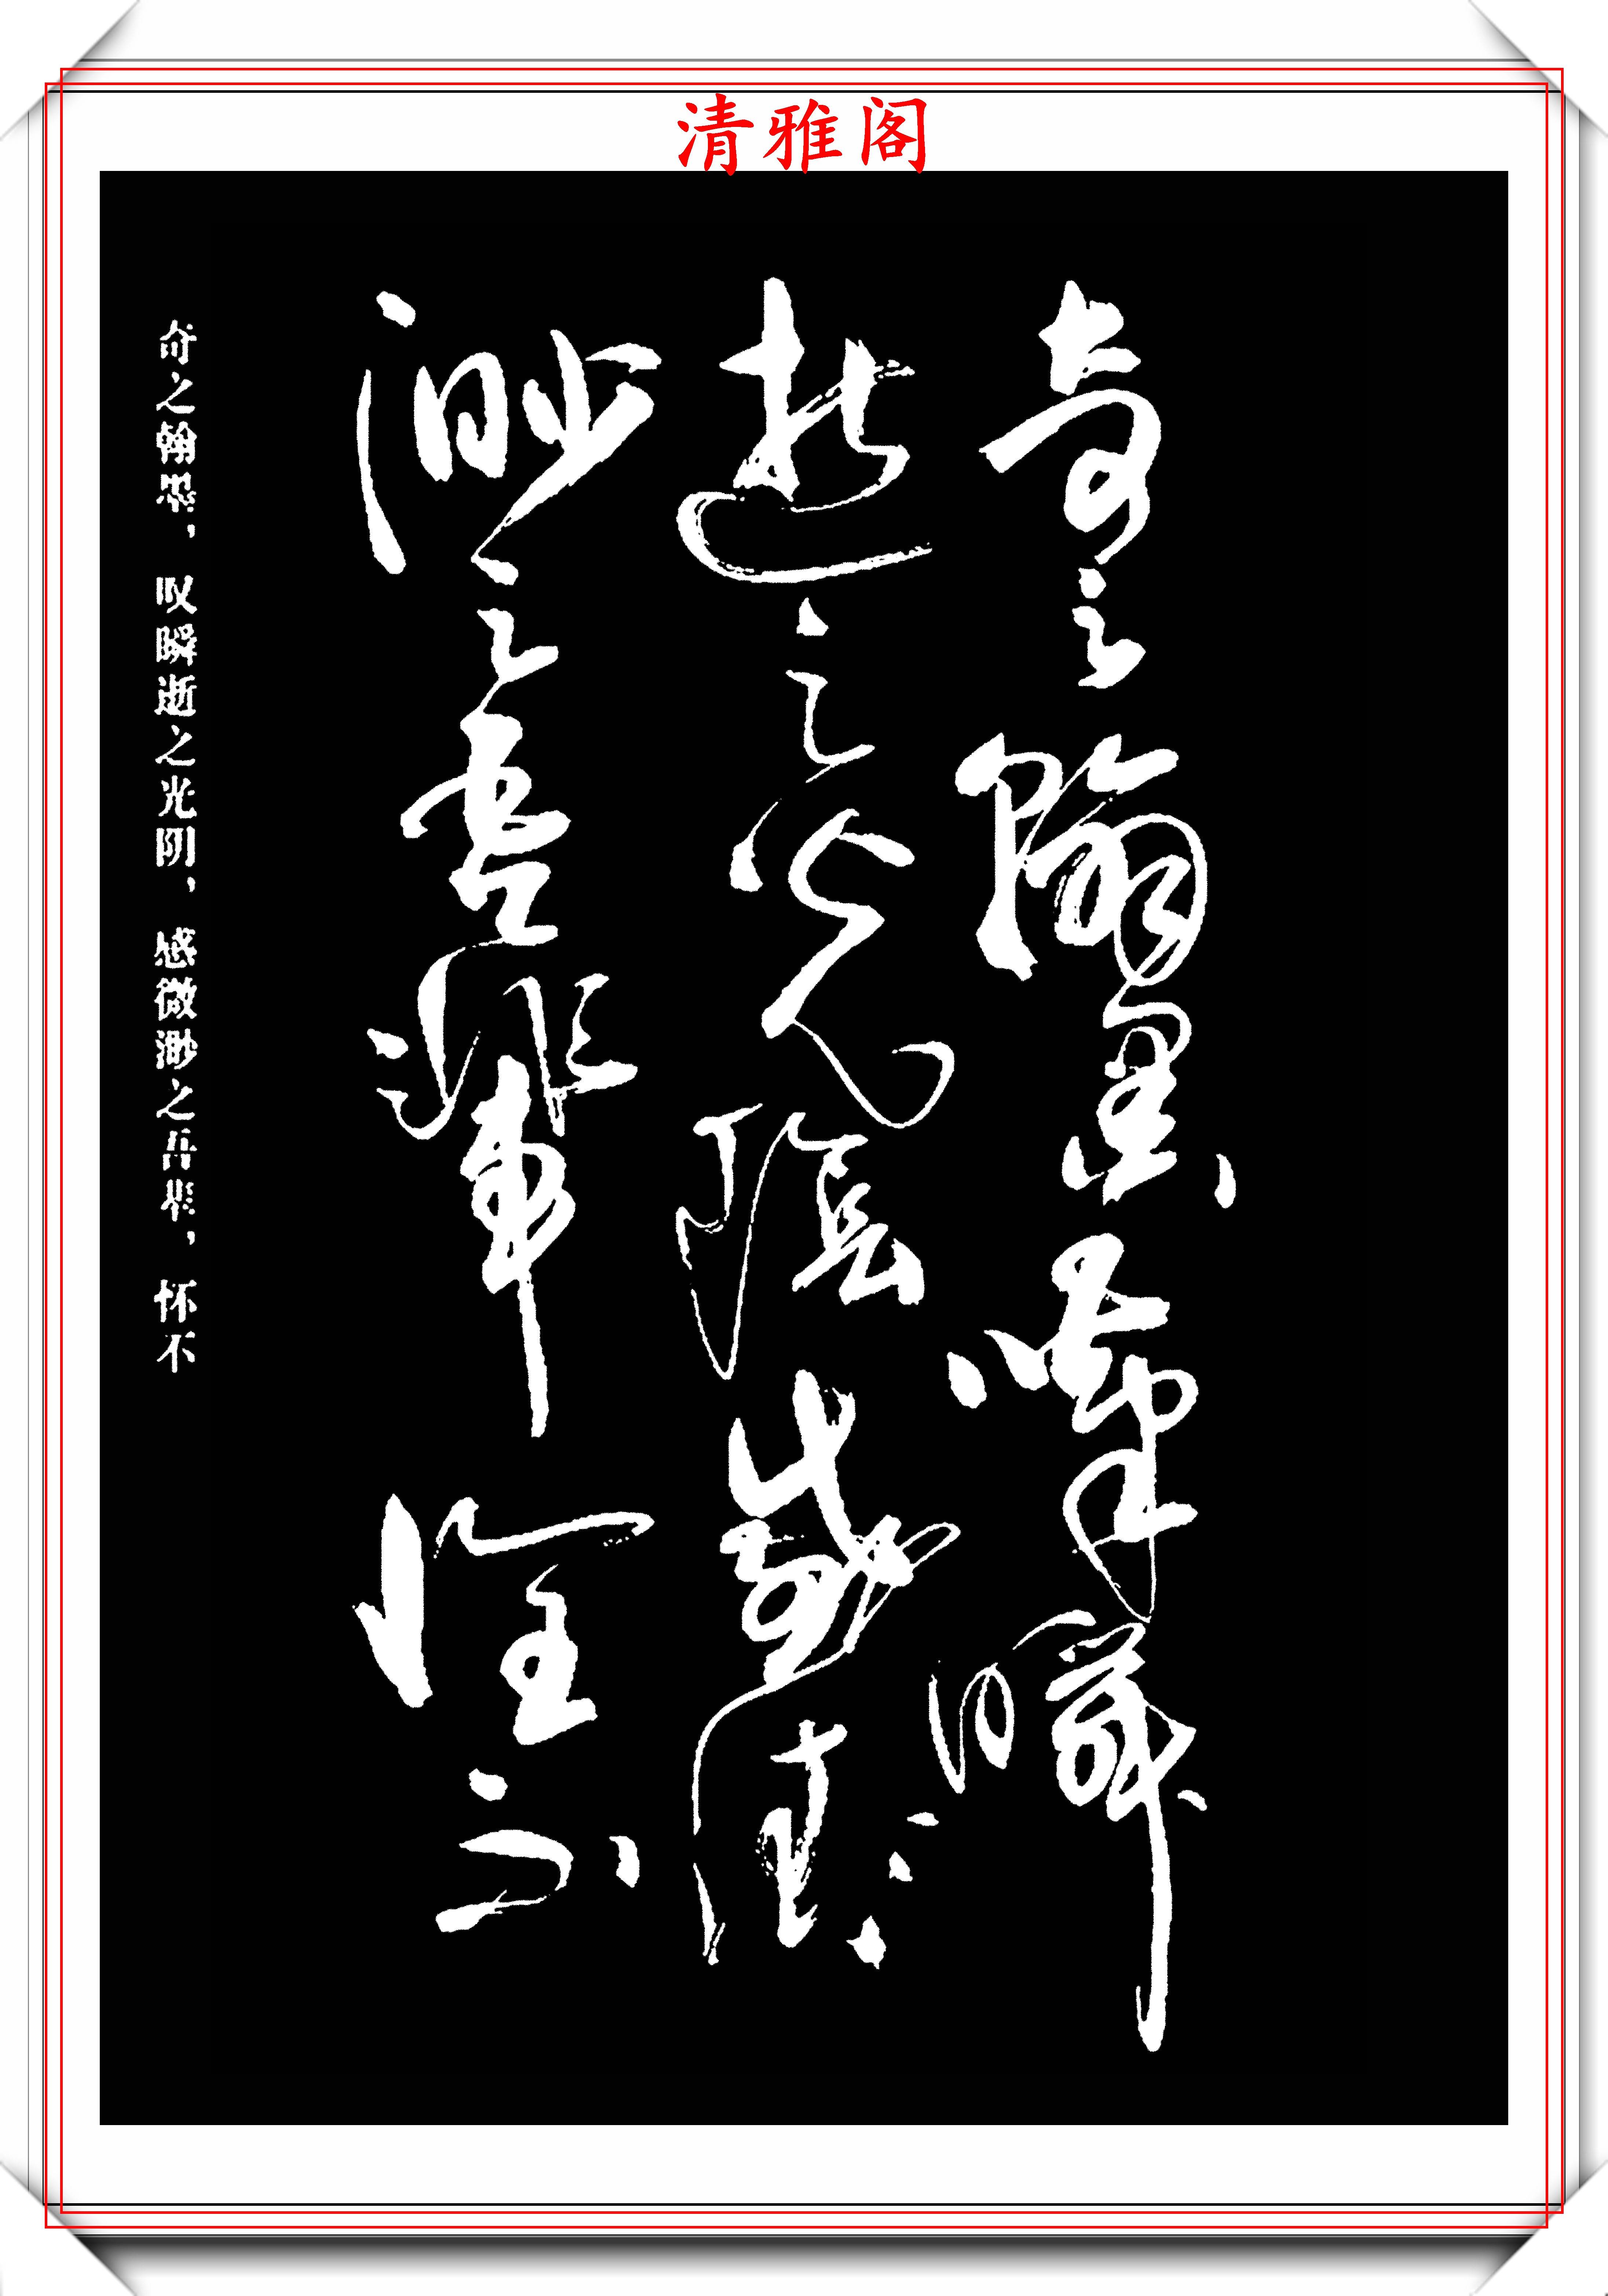 清雅阁
奇之翰墨嘆瞬
逝之光陰感微
渺之吾輩懷不
奇之翰墨，叹瞬逝之光阴，感微渺之吾辈，怀不